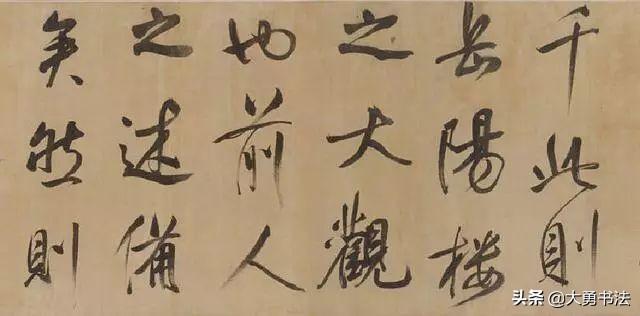 千此則
岳陽楼
之大觀
也前人
之述備
矣然則
头条 @大勇书法